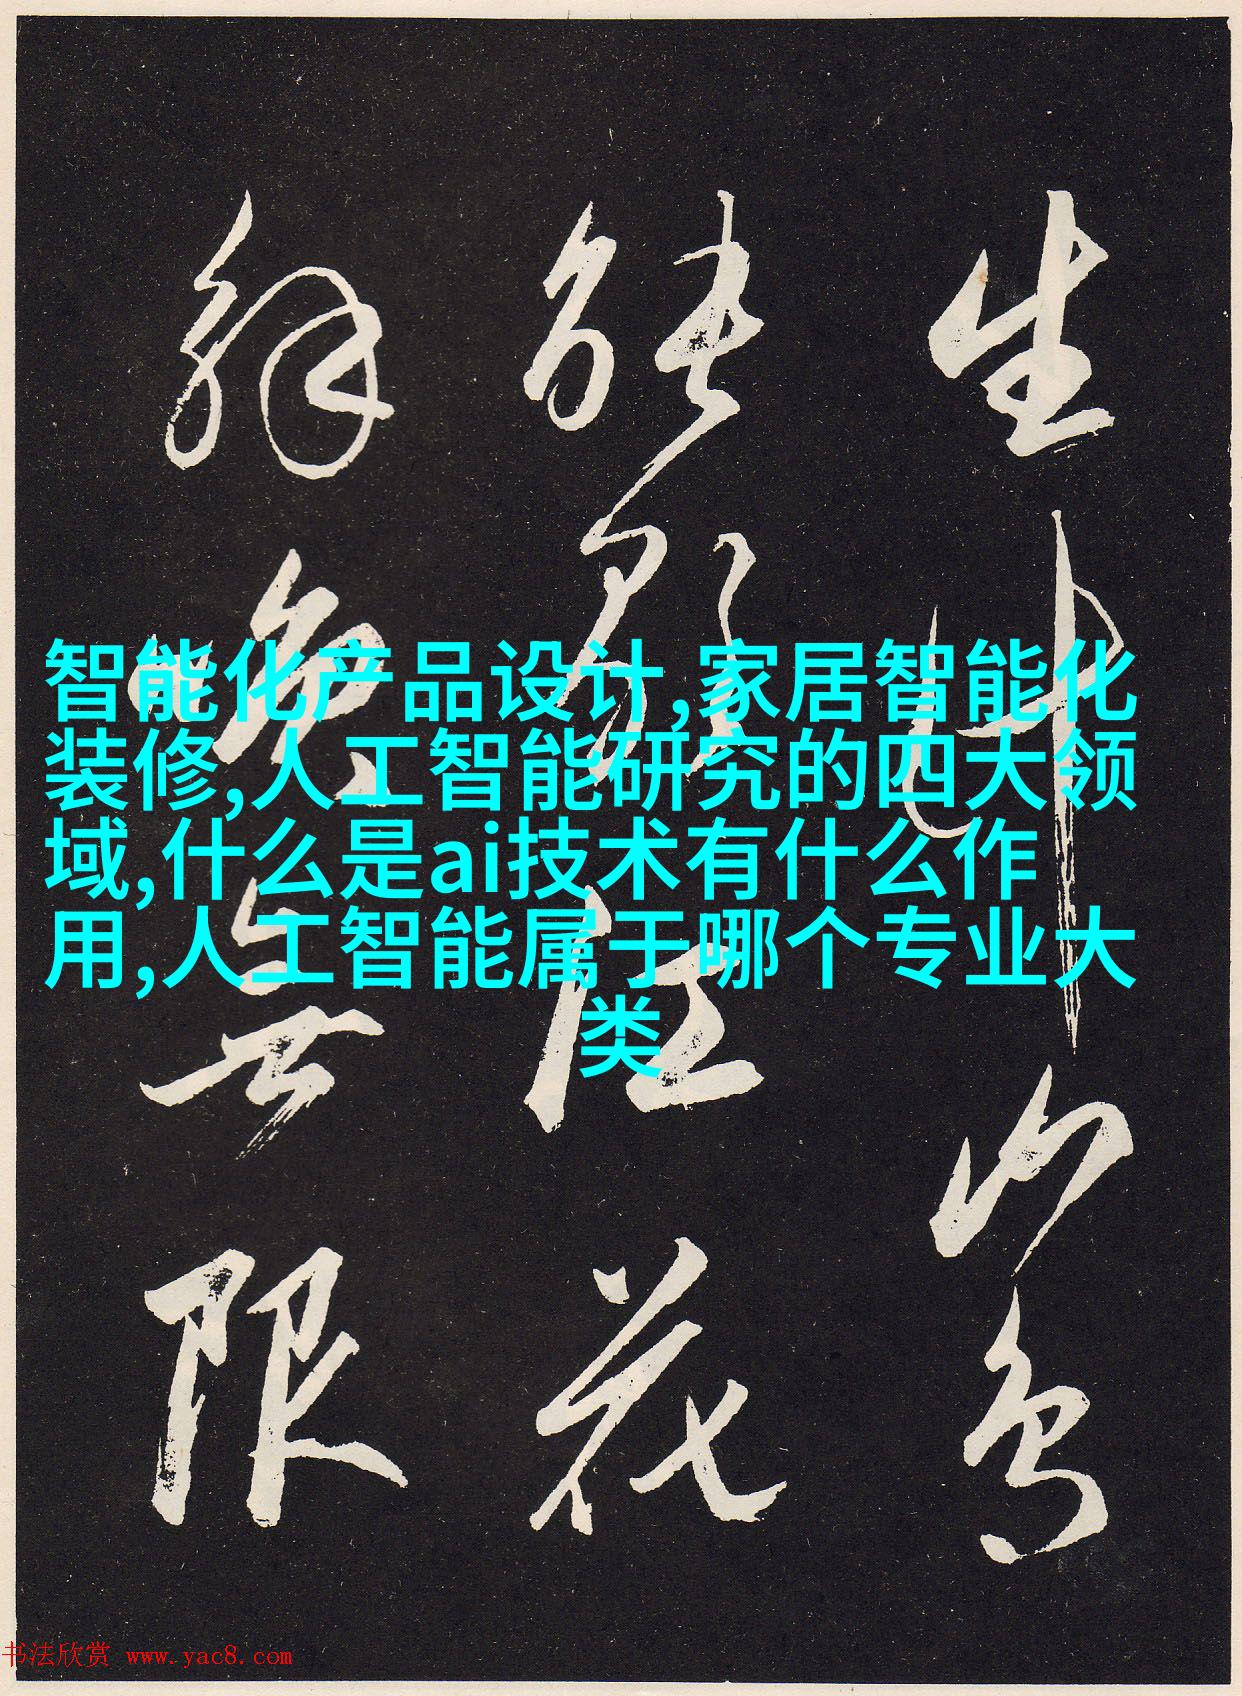 智能化产品设计,家居智能化
装修,人工智能研究的四大领
域,什么是ai技术有什么作
用,人工智能属于哪个专业大
类
生中山鸟
能歌任花
解舞无限
书法欣赏 www.yac8.com